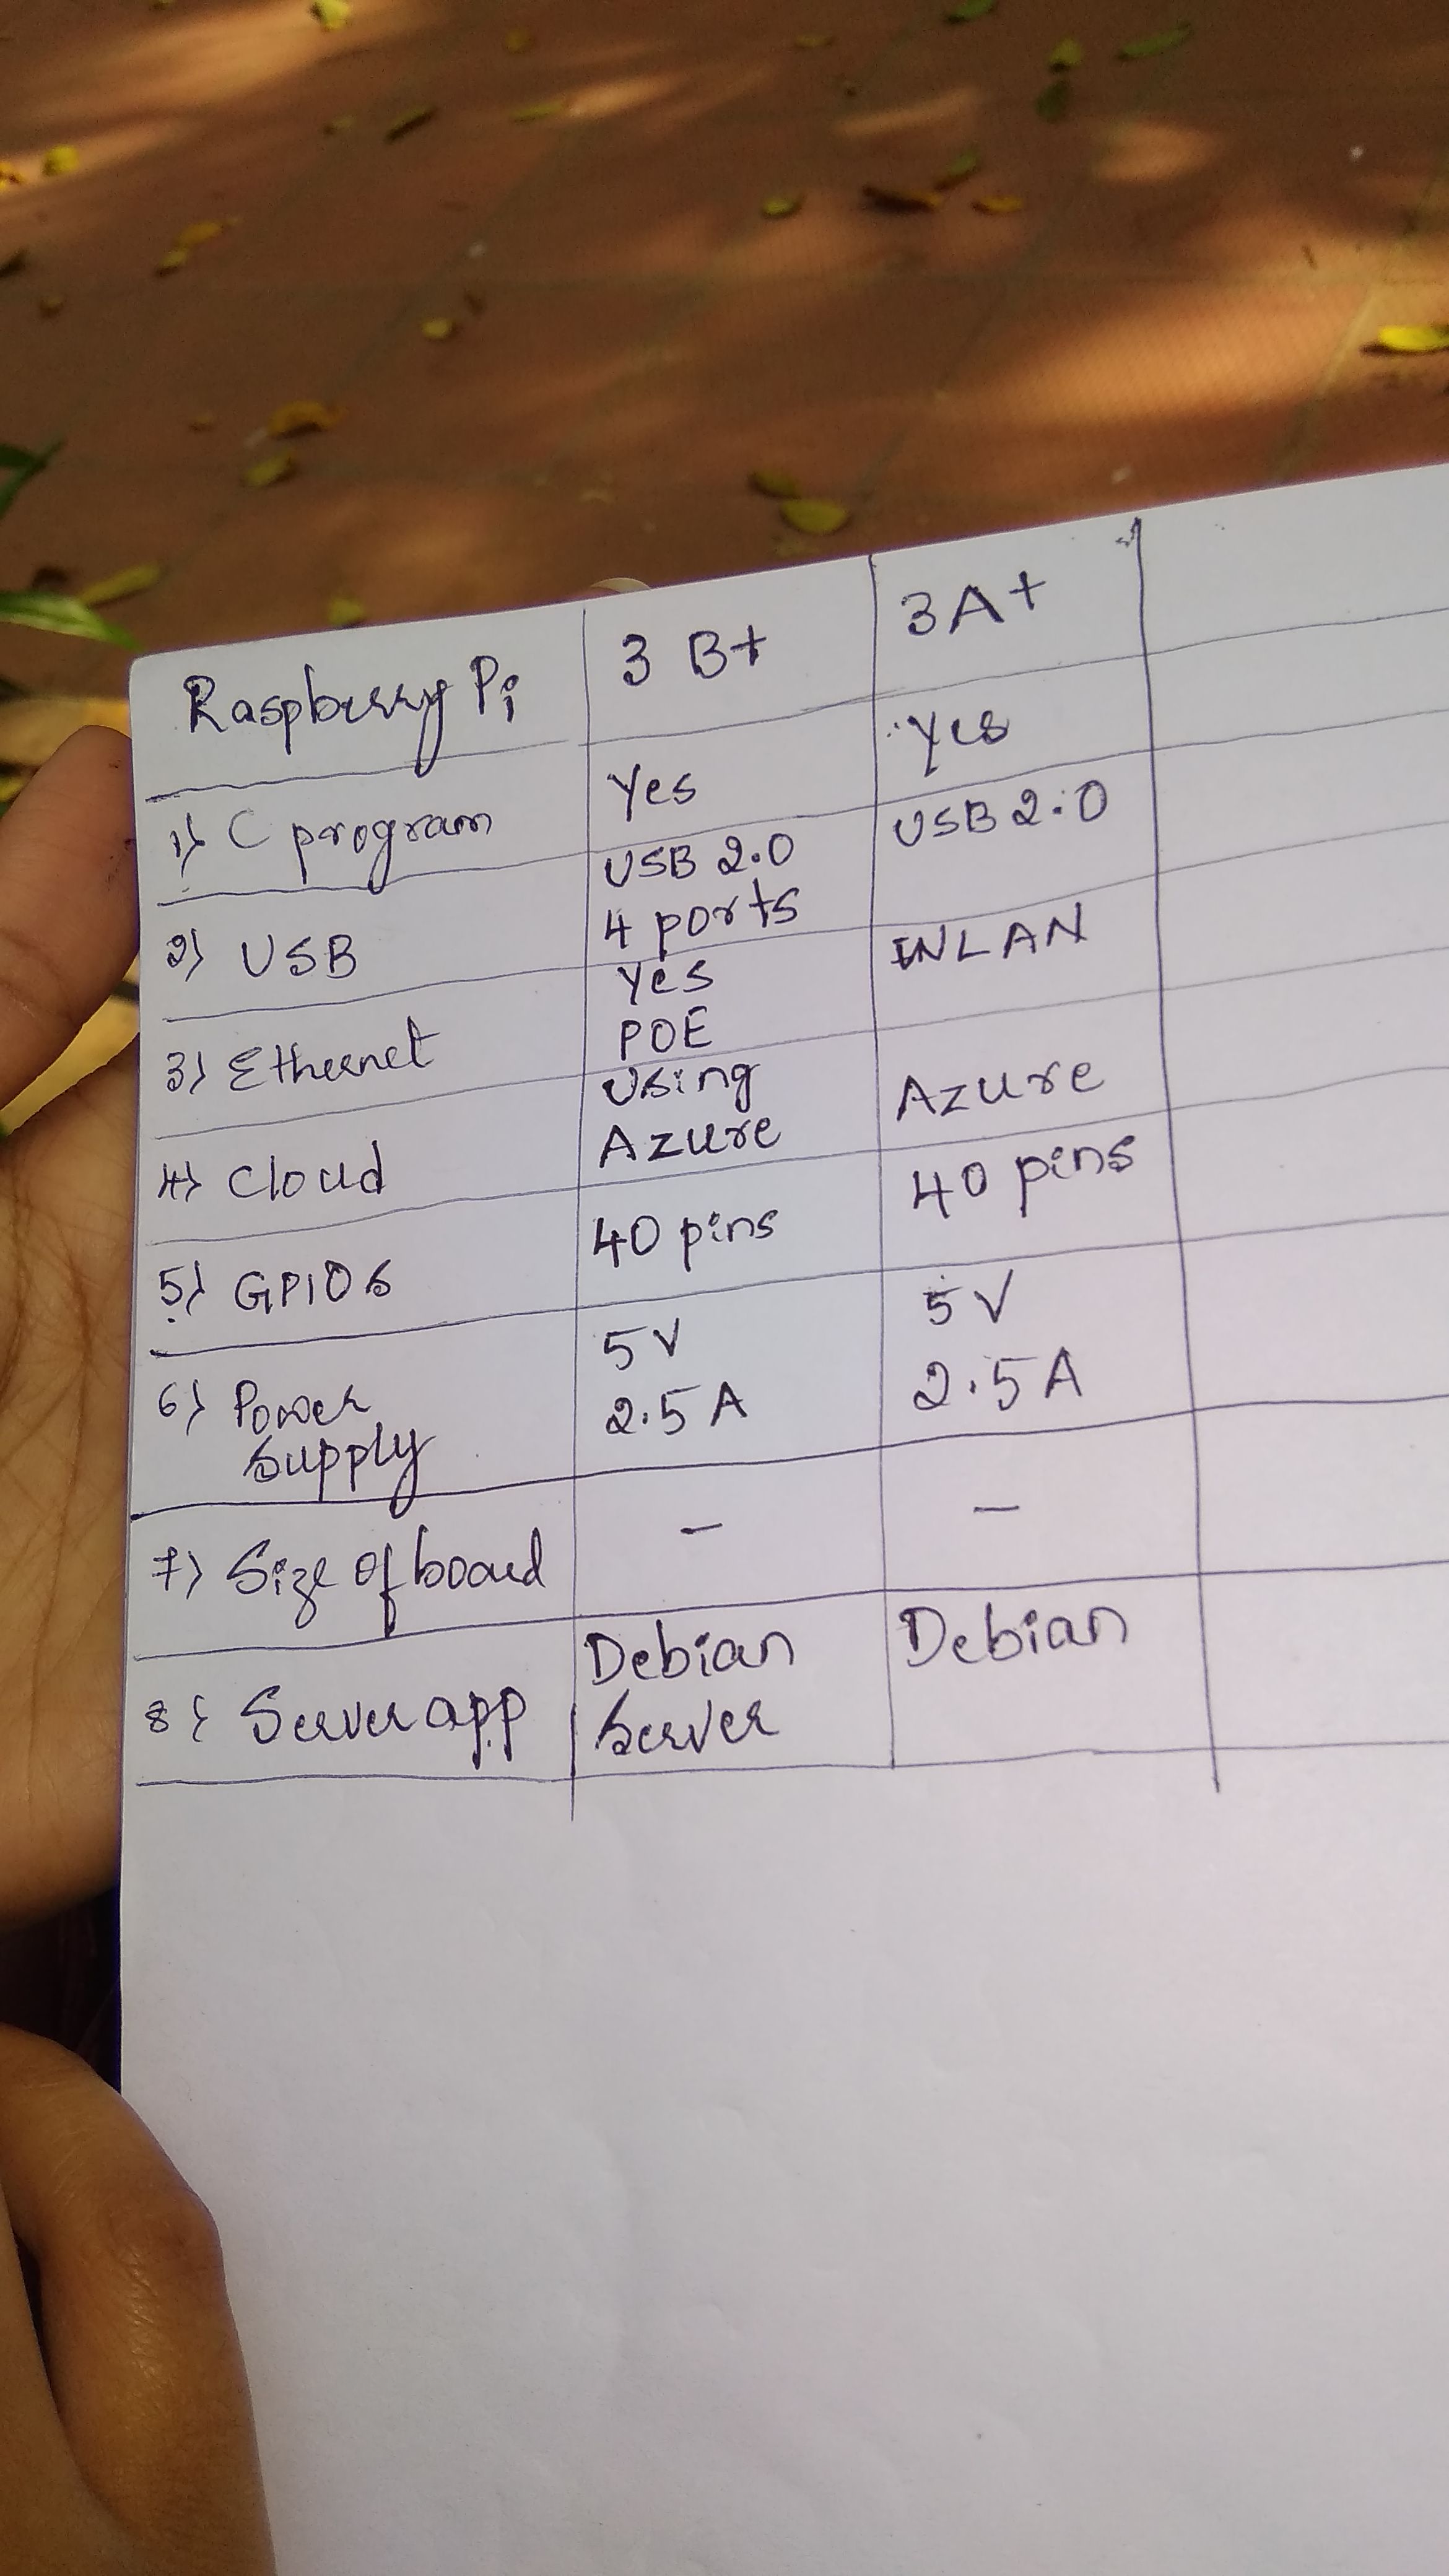 Raspberry Pi 3 B+ 3A+
1) C program Yes Yes
2) USB USB 2.0 USB 2.0
4 ports
3) Ethernet Yes WLAN
POE
4) Cloud Using Azure
Azure
5) GPIOs 40 pins 40 pins
6) Power 5V 5V
Supply 2.5 A 2.5 A
7) Size of board - -
8) Server app Debian Debian
Server